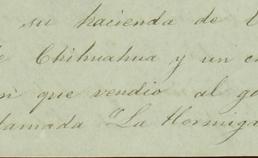 su hacienda de
Chihuahua y un
que vendio al
llamada "La Hormiga